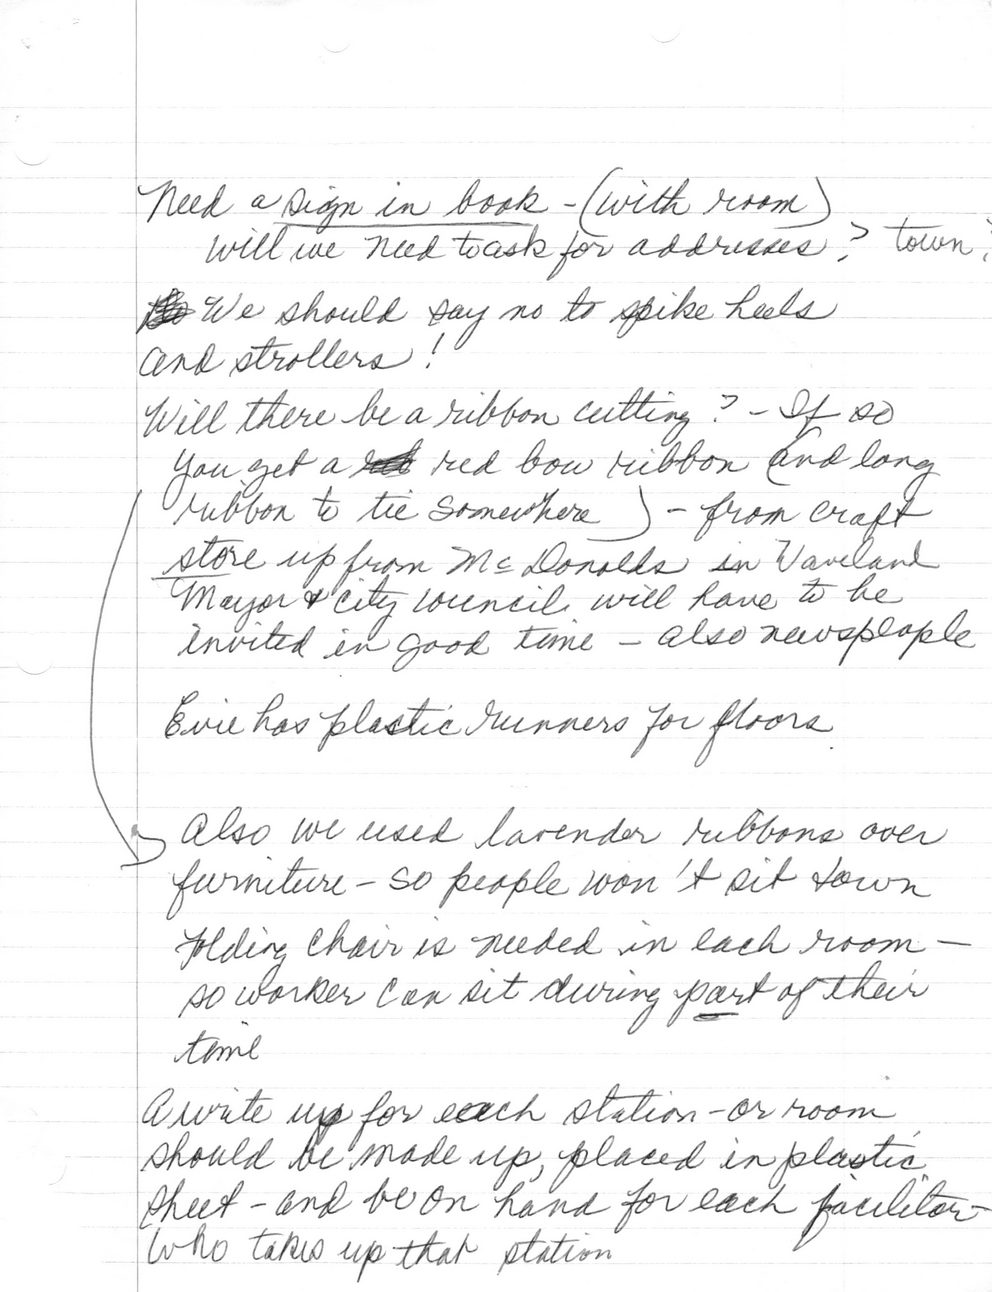 Need a sign in book - (with room)
will we need to ask for addresses? town?
We should say no to spike heels
and strollers!
Will there be a ribbon cutting? - If so
you get a red bow ribbon (and long
ribbon to tie somewhere) - from craft
store up from McDonalds in Waveland
Mayor & city council will have to be
invited in good time - also newspeople
Evie has plastic runners for floors.
Also we used lavender ribbons over
furniture - so people won't sit down
Folding chair is needed in each room -
so worker can sit during part of their
time
A write up for each station - or room
should be made up, placed in plastic
sheet - and be on hand for each facilitor
who takes up that station